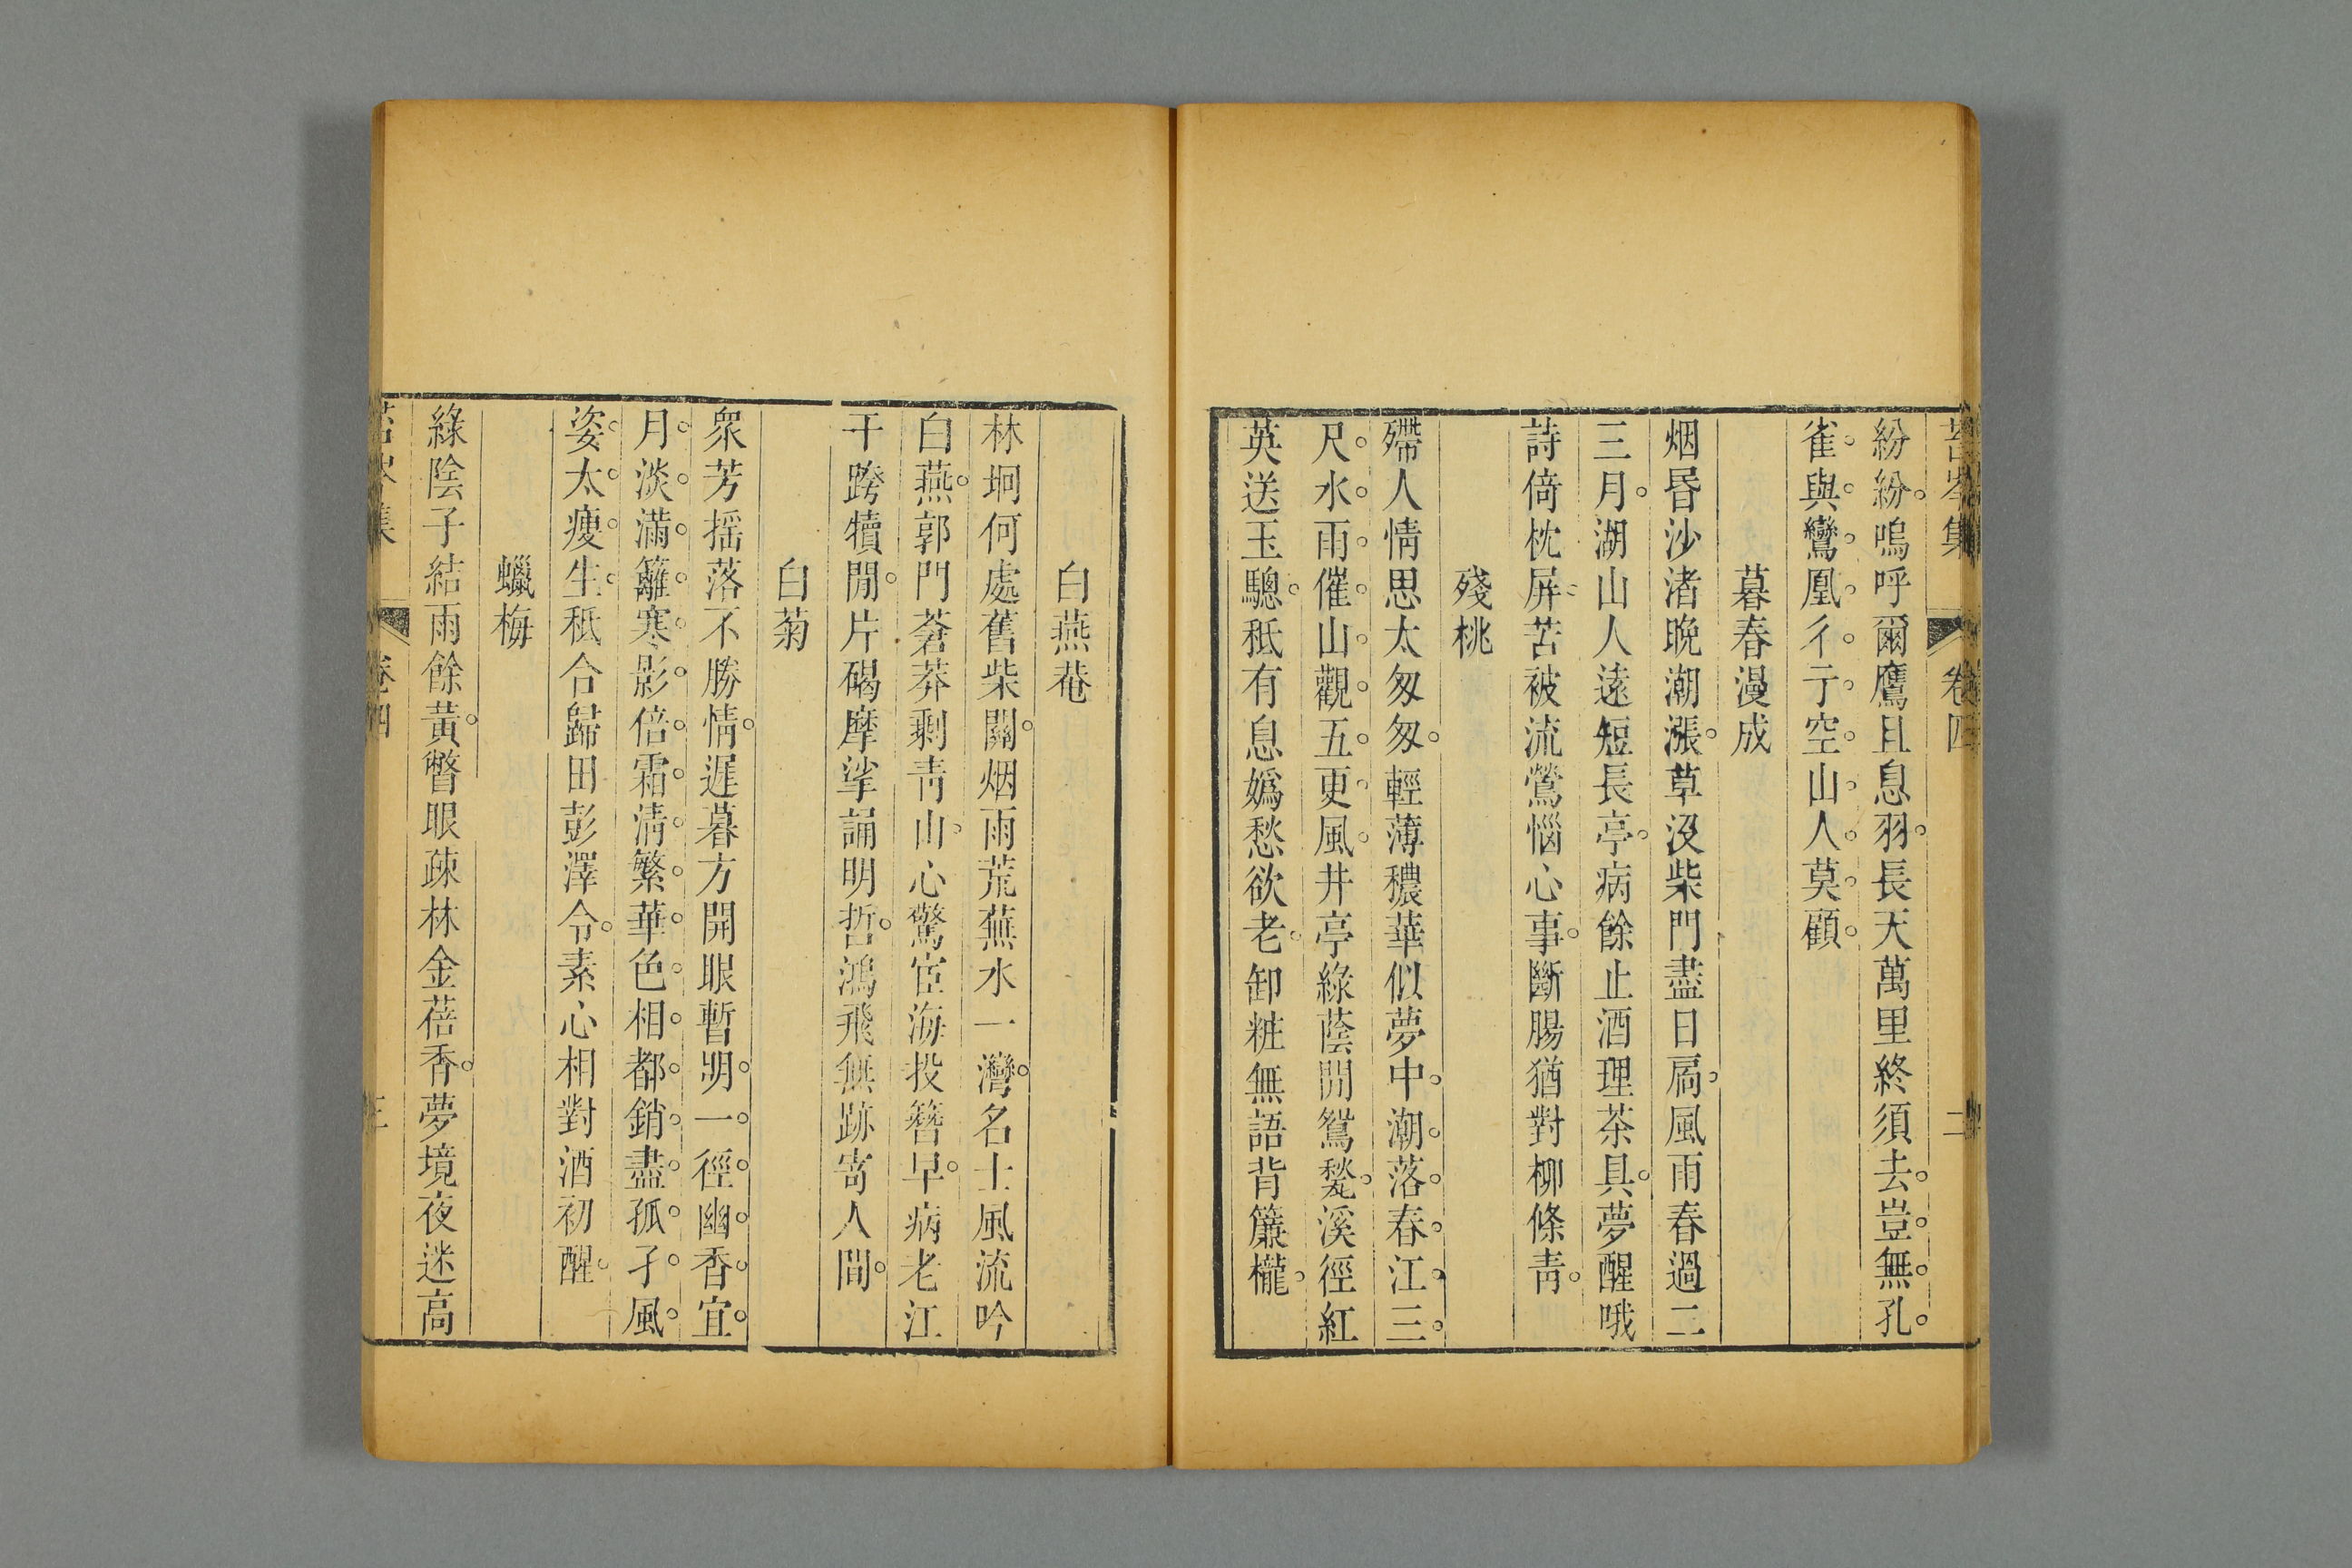 苔岑集 卷四 二
紛紛嗚呼爾鷹且息羽長天萬里終須去豈無孔
雀與鸞凰彳亍空山人莫顧
暮春漫成
烟昏沙渚晚潮漲草沒柴門盡日扄風雨春過二
三月湖山人遠短長亭病餘止酒理茶具夢醒哦
詩倚枕屏苦被流鶯惱心事斷腸猶對柳條靑
殘桃
殢人情思太匆匆輕薄穠華似夢中潮落春江三
尺水雨催山觀五更風井亭綠蔭閒鴛甃溪徑紅
英送玉驄秖有息嬀愁欲老卸粧無語背簾櫳
白燕菴
林坰何處舊柴關烟雨荒蕪水一灣名士風流吟
白燕郭門蒼莽剩靑山心驚宦海投簪早病老江
干跨犢閒片碣摩挲誦明哲鴻飛無跡寄人間
白菊
衆芳揺落不勝情遲暮方開眼暫明一徑幽香宜
月淡滿籬寒影倍霜淸繁華色相都銷盡孤孑風
姿太瘦生秖合歸田彭澤令素心相對酒初醒
蠟梅
綠陰子結雨餘黃瞥眼疎林金蓓香夢境夜迷高
集 卷四 三